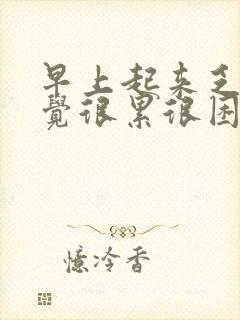 早上起来乏
覺很累很困
憶冷香